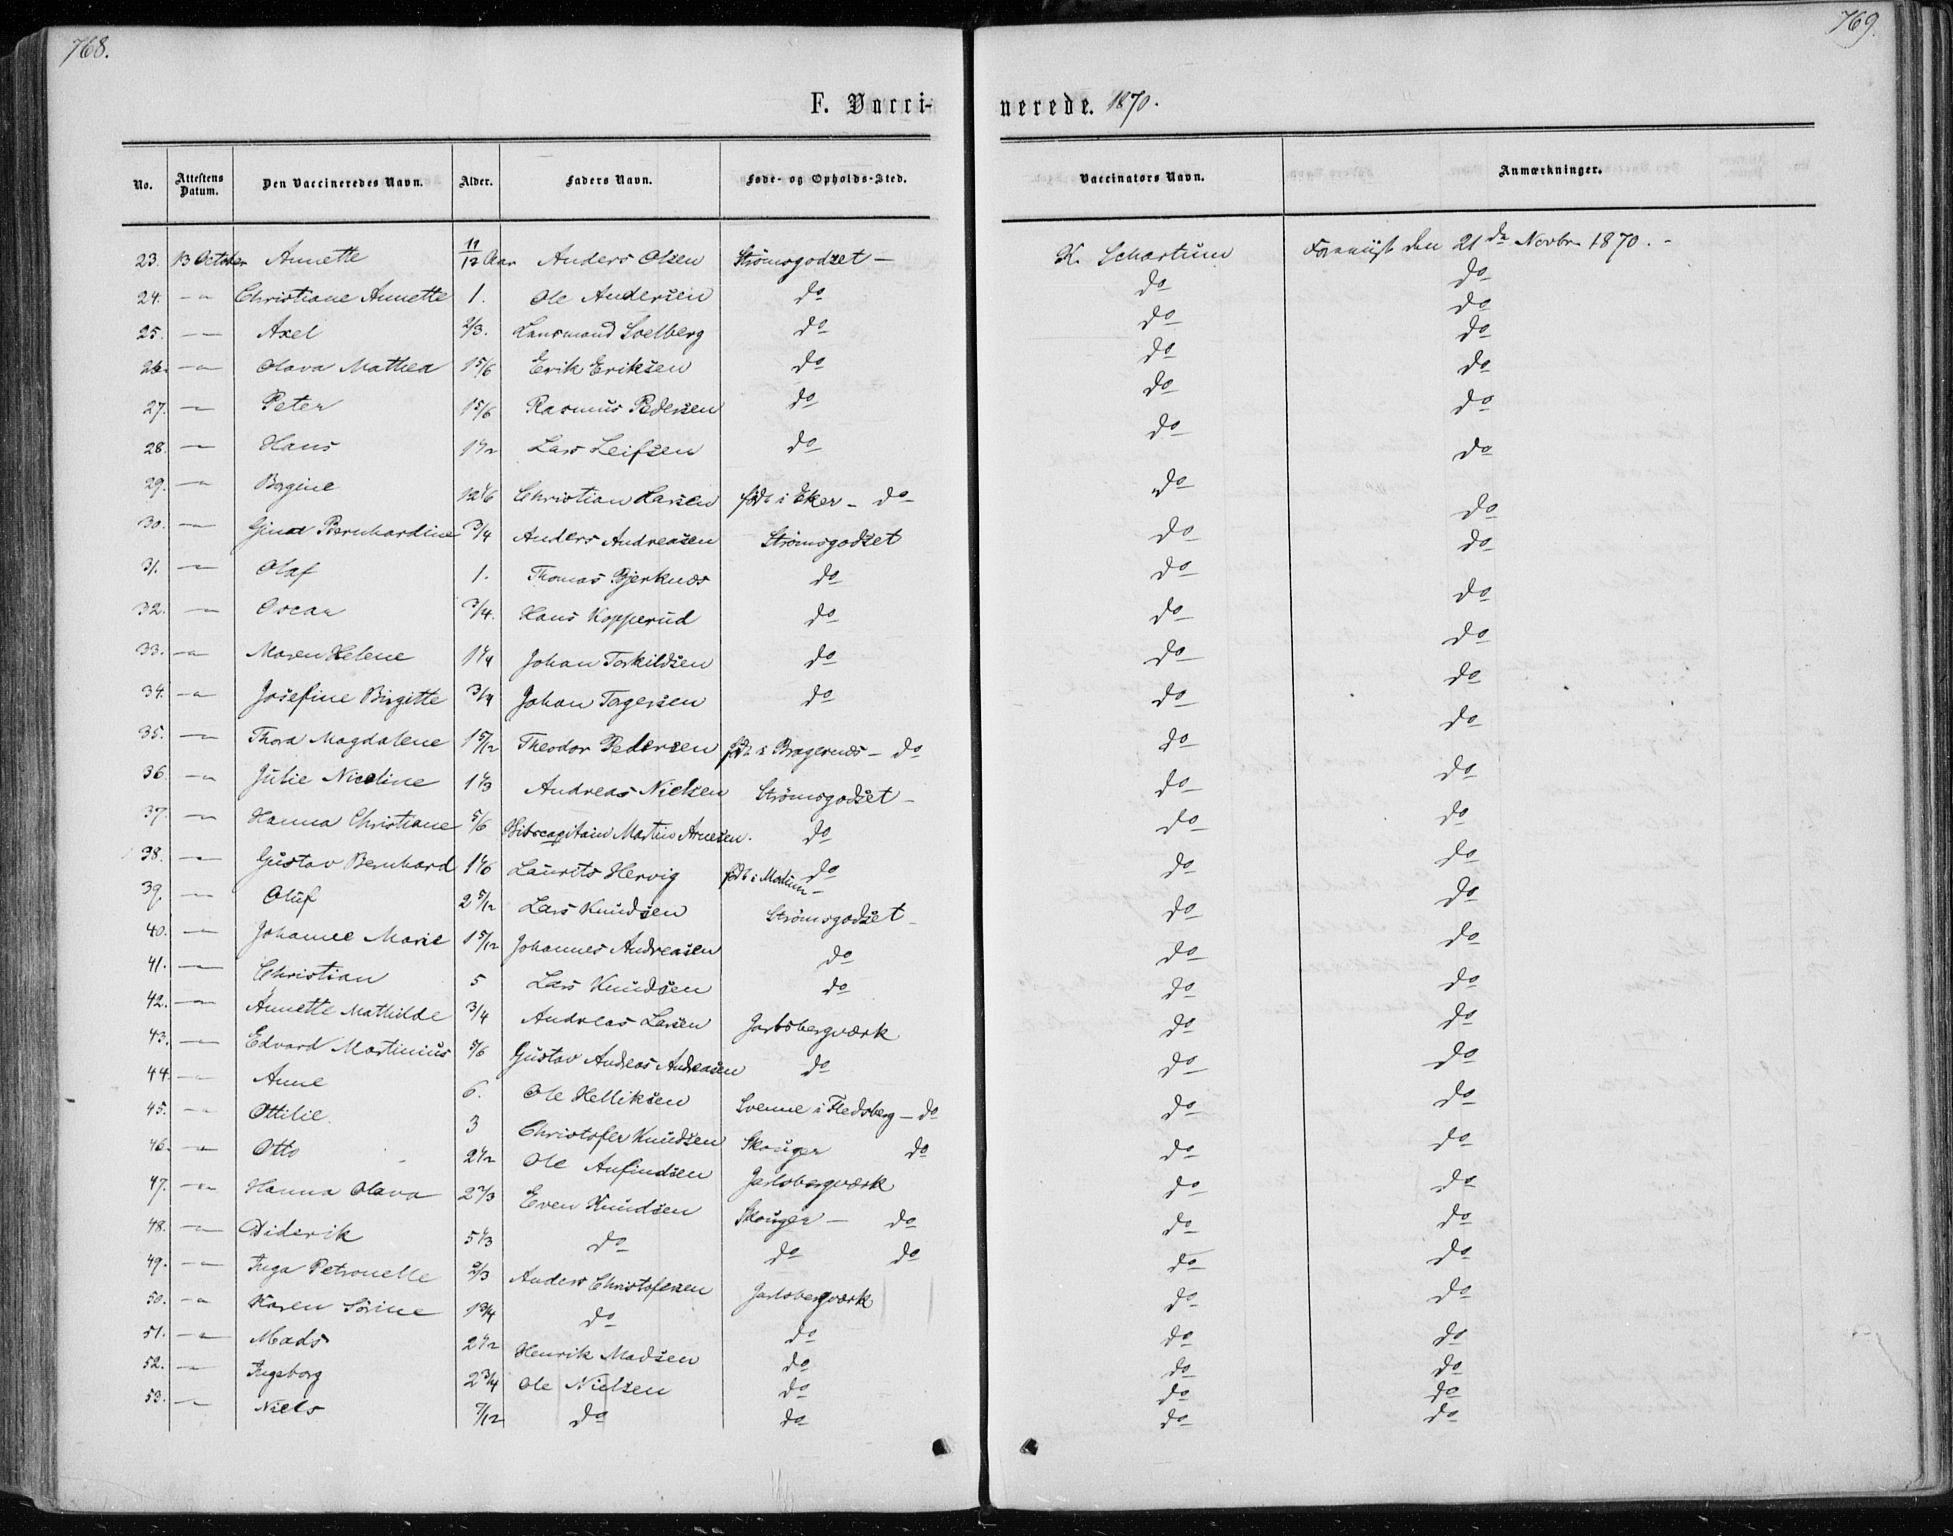 768.
769.
F. Vacci-
nerede. 1870.
No. Attestens Datum. Den Vaccineredes Navn. Alder. Faders Navn. Føde- og Opholds-Sted. Vaccinators Navn. Anmærkninger.
23. 13 October Annette 11/12 Aar Anders Olsen Strömsgodset — K. Schartum den 21de Novbr 1870. -
24. —"— Christiane Annette 1. Ole Andersen do do do
25. —"— Axel 2/3. Lensmand Solberg do do do
26. —"— Olava Mathea 1 5/6 Erik Eriksen do do do
27. —"— Peter 1 5/6 Rasmus Pedersen do do do
28. —"— Hans 1 1/2 Lars Leifsen do do do
29. —"— Bergine 12 1/6 Christian Larsen födt i Eker — do do do
30. —"— Gina Bernhardine 3/4 Anders Andreasen Strömsgodset do do
31. —"— Olaf 1. Thomas Bjerknes do do do
32. —"— Oscar 3/4. Hans Kopperud do do do
33. —"— Maren Helene 1 1/4 Johan Torkildsen do do do
34. —"— Josefine Birgitte 3/4 Johan Torgersen do do do
35. —"— Thora Magdalene 1 5/12 Theodor Pedersen födt i Bragernes — do do do
36. —"— Julie Nicoline 1 1/3 Andreas Nielsen Strömsgodset — do do
37. —"— Hanna Christiane 5/6 Skibscapitain Martin Arnesen. do do do
38. —"— Gustav Bernhard 1 1/6 Laurits Hervig födt i Modum — do do do
39. —"— Oluf 2 5/12 Lars Knudsen Strömsgodset — do do
40. —"— Johanne Marie 1 5/12 Johannes Andreasen do do do
41. —"— Christian 5 Lars Knudsen do do do
42. —"— Annette Mathilde 3/4 Andreas Larsen Jarlsbergværk do do
43. —"— Edvard Martinius 5/6 Gustav Andreas Andreasen do do do
44. —"— Anne 6. Ole Helliksen Svenne i Flesberg — do do do
45. —"— Ottilie. 3 Christofer Knudsen Skouger do do do
46. —"— Otto 2 1/2 Ole Anfindsen Jarlsbergværk do do
47. —"— Hanna Olava 2 2/3 Even Knudsen Skouger — do do do
48. —"— Diderik 5 1/3 do do do do do
49. —"— Inga Petronelle 2/3 Anders Christofersen Jarlsbergværk do do
50. —"— Karen Sörine 1 3/4 do do do do
51. —"— Mads 2 1/2 Henrik Madsen do do do
52. —"— Ingeborg 2 3/4 Ole Nielsen do do do
53. —"— Niels 7/12 do do do do